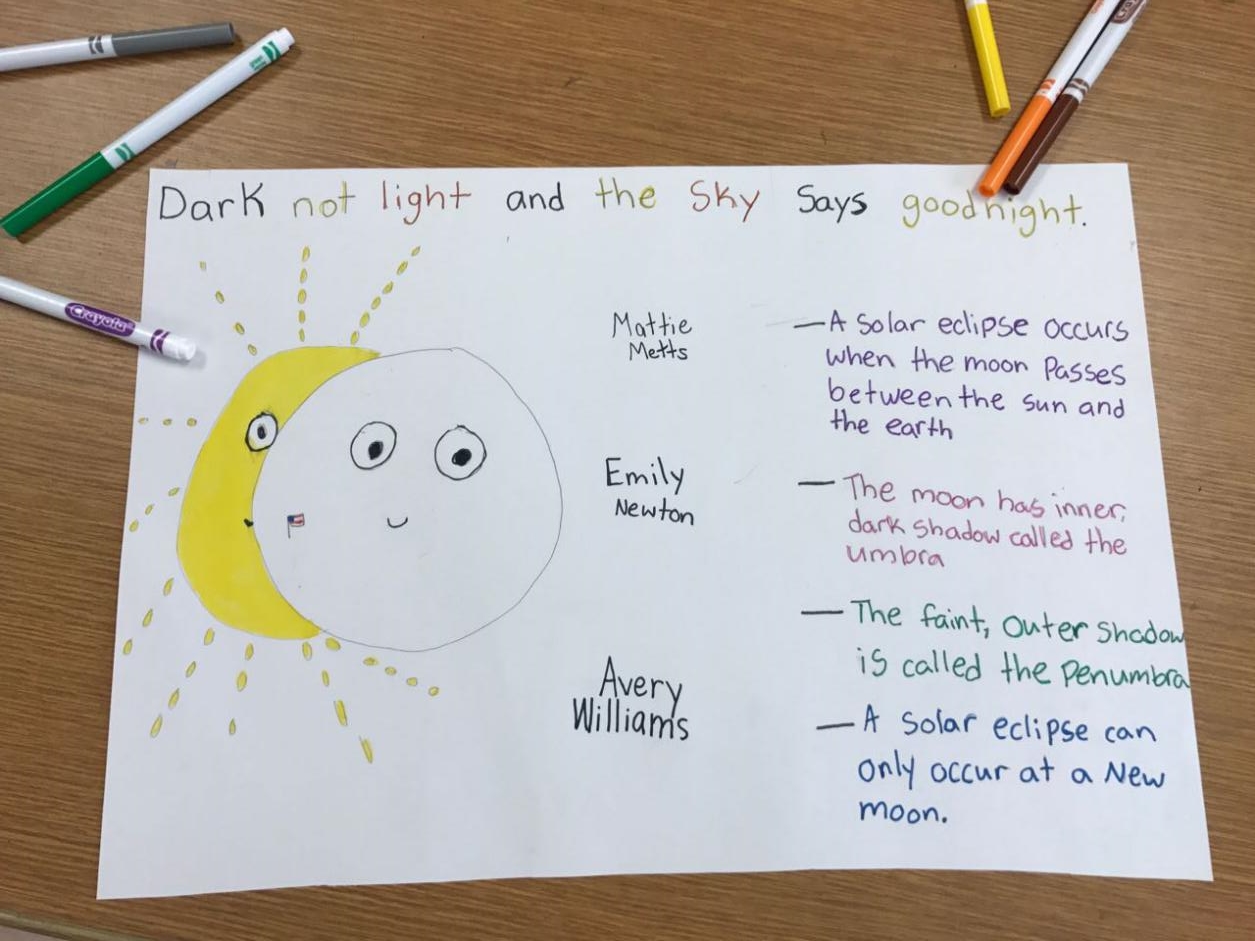 Dark not light and the Sky Says goodnight.
Mattie
Metts
Emily
Newton
Avery
Williams
— A Solar eclipse occurs
when the moon Passes
between the sun and
the earth
— The moon has inner,
dark shadow called the
umbra
— The faint, outer shadow
is called the Penumbra
— A Solar eclipse can
only occur at a New
moon.
Crayola